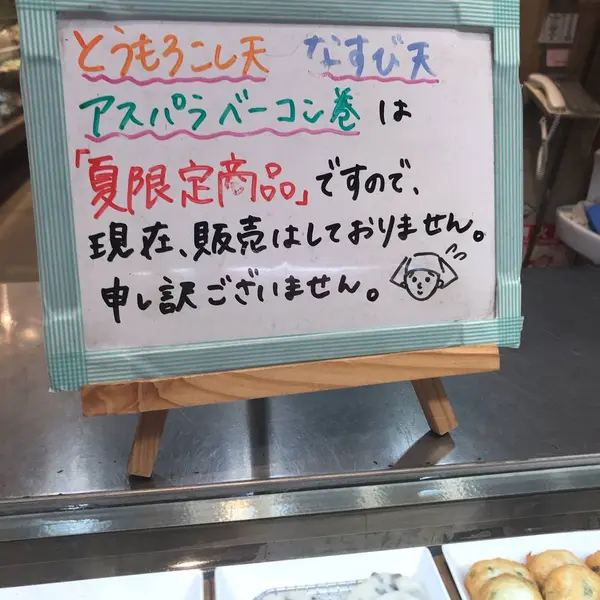 とうもろこし天 なすび天
アスパラベーコン巻 は
「夏限定商品」ですので、
現在、販売はしておりません。
申し訳ございません。